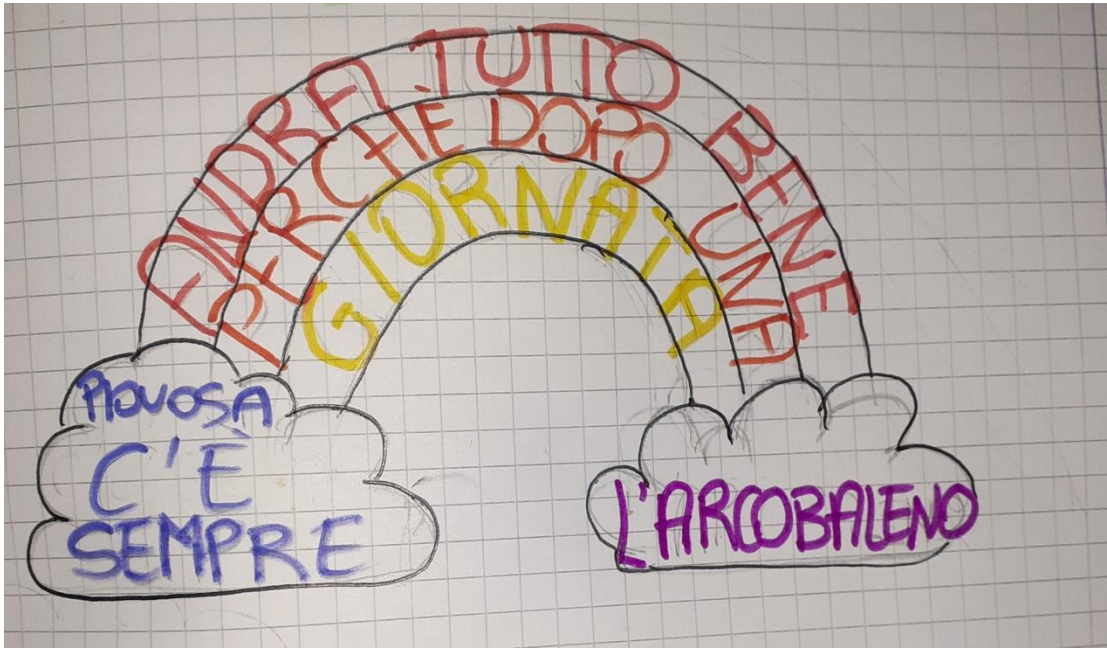 ANDRA' TUTTO BENE
PERCHÈ DOPO UNA
GIORNATA
PIOVOSA
C'È
SEMPRE
L'ARCOBALENO